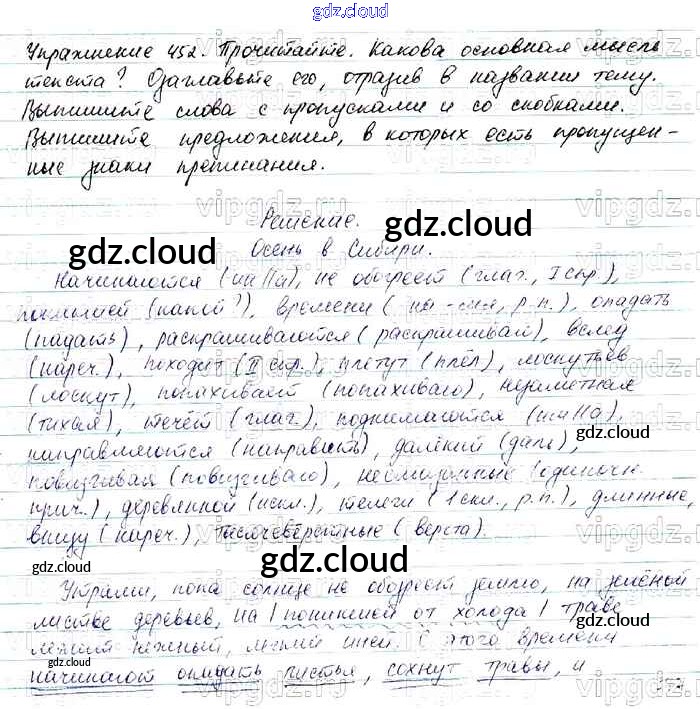 gdz.cloud
Упражнение 452. Прочитайте. Какова основная мысль
текста? Озаглавьте его, отразив в названии тему.
Выпишите слова с пропусками и со скобками.
Выпишите предложения, в которых есть пропущен-
ные знаки препинания.
Решение.
gdz.cloud gdz.cloud
Осень в Сибири.
Начинаются (шаIIа), не обогреет (глаг., I спр.),
поникшей (какой?), времени (на -мя, р.п.), опадать
(падать), раскрашиваются (раскрашивай), вслед
(нареч.), походит (II спр.), плетут (плёл), лоскутьев
(лоскут), попахивает (попахиваю), незаметная
(тихая), течёт (глаг.), поднимаются (шаIIа),
gdz.cloud
направляются (направить), далёкий (даль),
повизгивая (повизгиваю), несмазанные (одиночн.
прич.), деревянной (искл.), телеги (1 скл., р.п.), длинные,
внизу (нареч.), тысячевёрстные (верста).
gdz.cloud gdz.cloud gdz.cloud
Утрами, пока солнце не обогреет землю, на зелёной
листве деревьев, на | поникшей от холода | траве
лежит нежный, легкий иней. С этого времени
gdz.cloud gdz.cloud
начинают опадать листья, сохнут травы, и